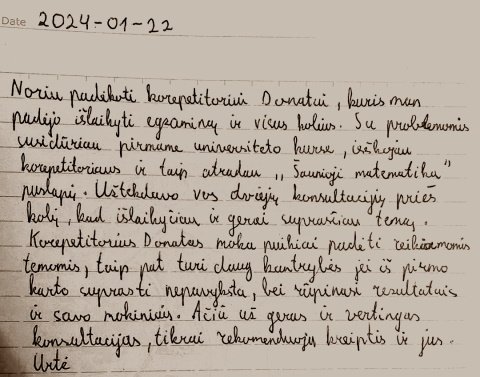 Date 2024-01-22
Noriu padėkoti korepetitoriui Donatui, kuris man
padėjo išlaikyti egzaminą ir visus kolius. Su problemomis
susidūriau pirmame universiteto kurse, ieškojau
korepetitoriaus ir taip atradau „Šaunioji matematika"
puslapį. Užtekdavo vos dviejų konsultacijų prieš
kolį, kad išlaikyčiau ir gerai suprasčiau temą.
Korepetitorius Donatas moka puikiai padėti reikiamomis
temomis, taip pat turi daug kantrybės jei iš pirmo
karto suprasti nepavyksta, bei rūpinasi rezultatais
ir savo mokiniais. Ačiū už geras ir vertingas
konsultacijas, tikrai rekomenduoju kreiptis ir jus.
Urtė